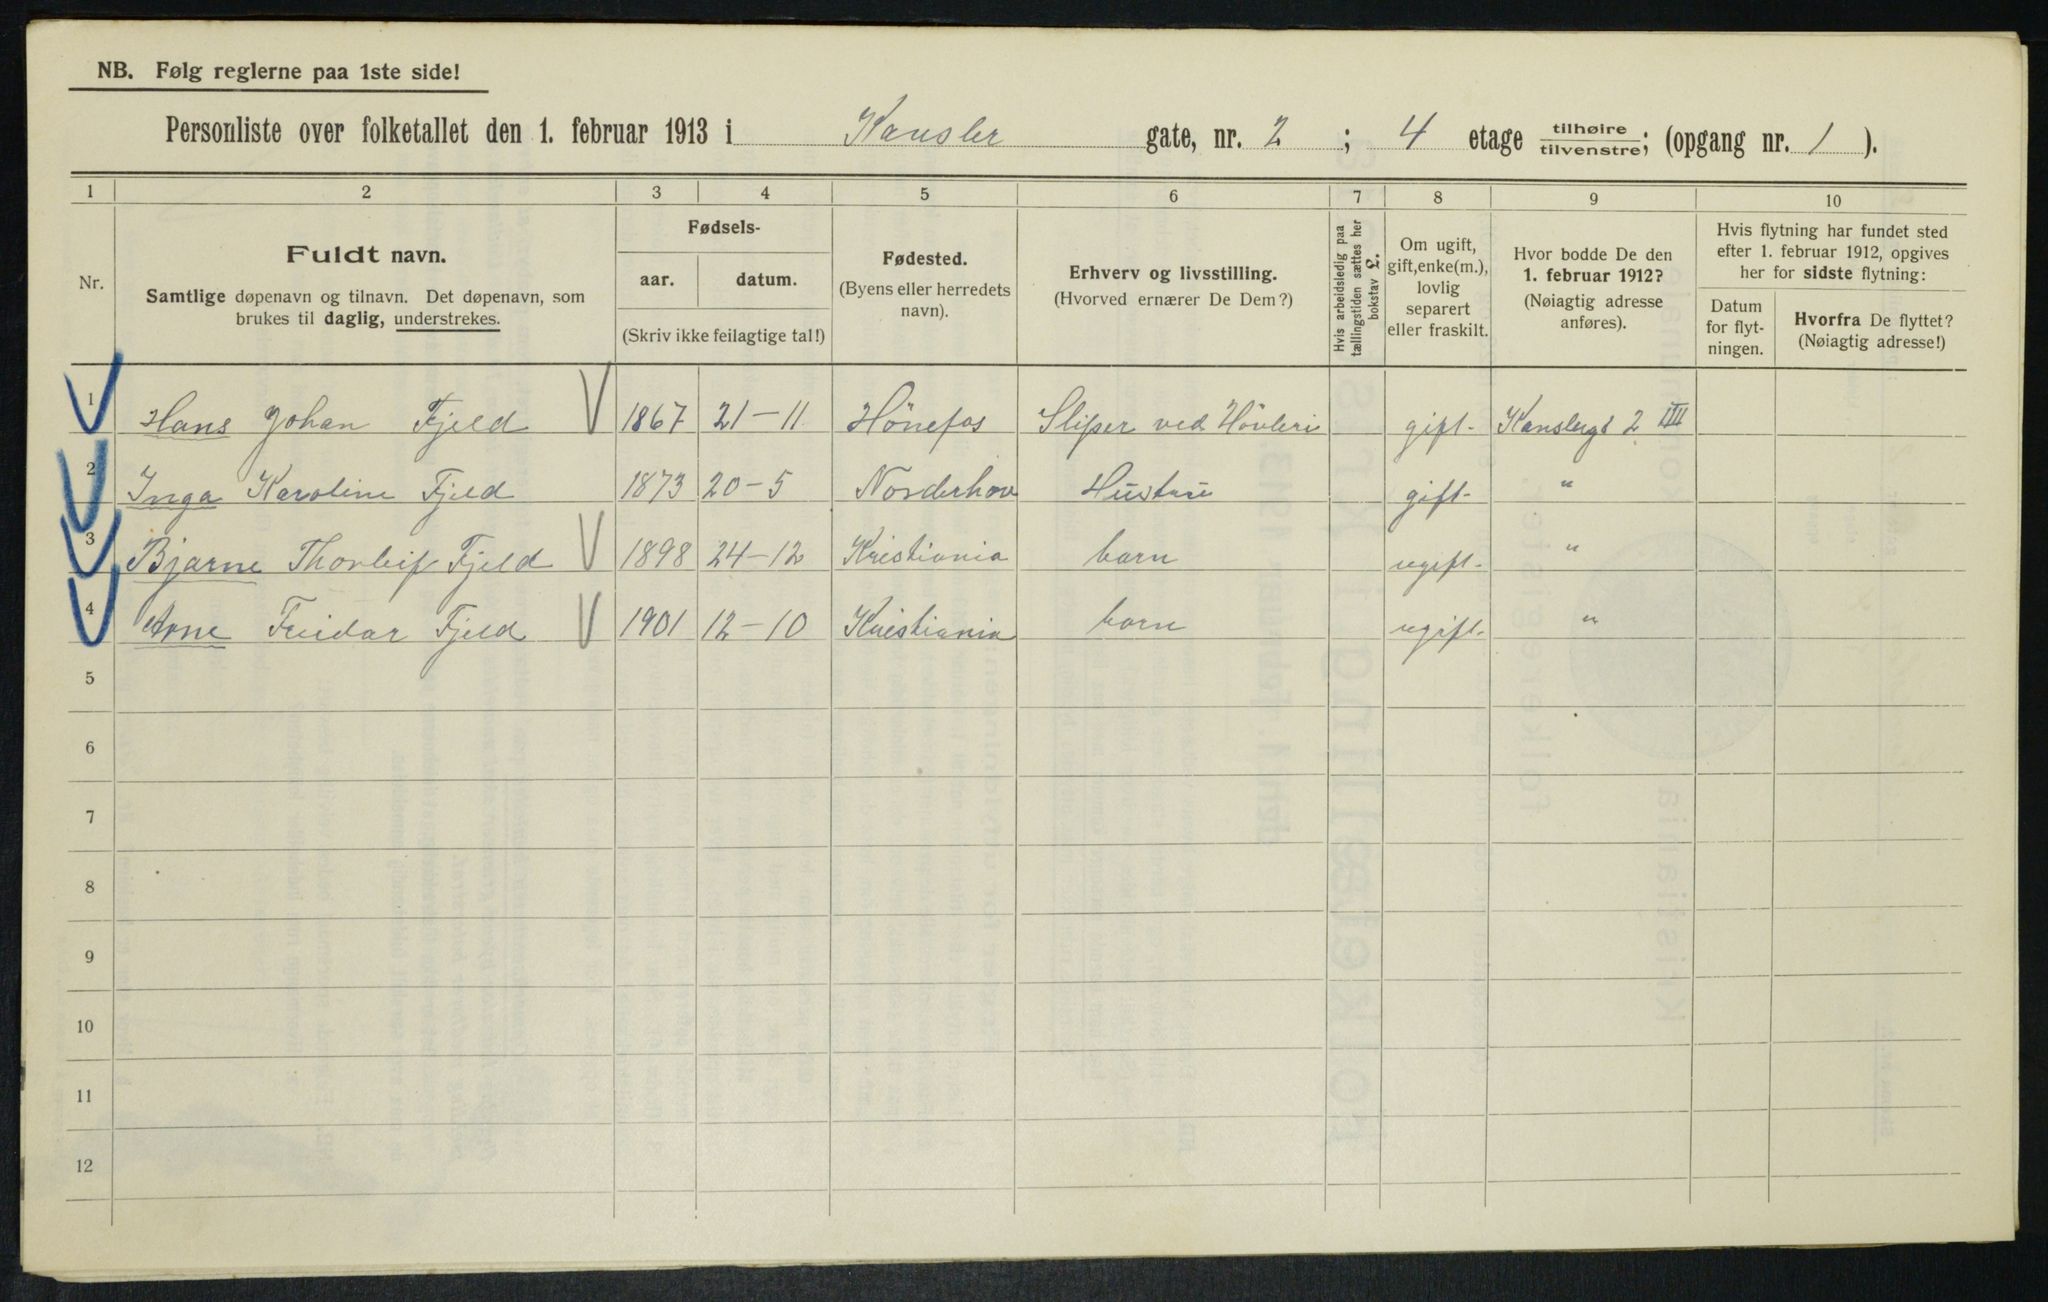 NB. Følg reglerne paa 1ste side!
Personliste over folketallet den 1. februar 1913 i Kansler gate, nr. 2 ; 4 etage tilhøire/tilvenstre; (opgang nr. 1 ).
1 2 3 4 5 6 7 8 9 10
Nr.
Fuldt navn.
Samtlige døpenavn og tilnavn. Det døpenavn, som
brukes til daglig, understrekes.
Fødsels-
aar. datum.
(Skriv ikke feilagtige tal!)
Fødested.
(Byens eller herredets
navn).
Erhverv og livsstilling.
(Hvorved ernærer De Dem?)
Hvis arbeidsledig paa
tællingstiden sættes her
bokstav L.
Om ugift,
gift, enke(m.),
lovlig
separert
eller fraskilt.
Hvor bodde De den
1. februar 1912?
(Nøiagtig adresse
anføres).
Hvis flytning har fundet sted
efter 1. februar 1912, opgives
her for sidste flytning:
Datum
for flyt-
ningen.
Hvorfra De flyttet?
(Nøiagtig adresse!)
1 Hans Johan Fjeld 1867 21-11 Hönefos Sliper ved Hövleri gift- Kanslergt 2 III
2 Inga Karoline Fjeld 1873 20-5 Norderhov Hustru gift- "
3 Bjarne Thorleif Fjeld 1898 24-12 Kristiania barn ugift- "
4 Arne Freidar Fjeld 1901 12-10 Kristiania barn ugift- "
5
6
7
8
9
10
11
12